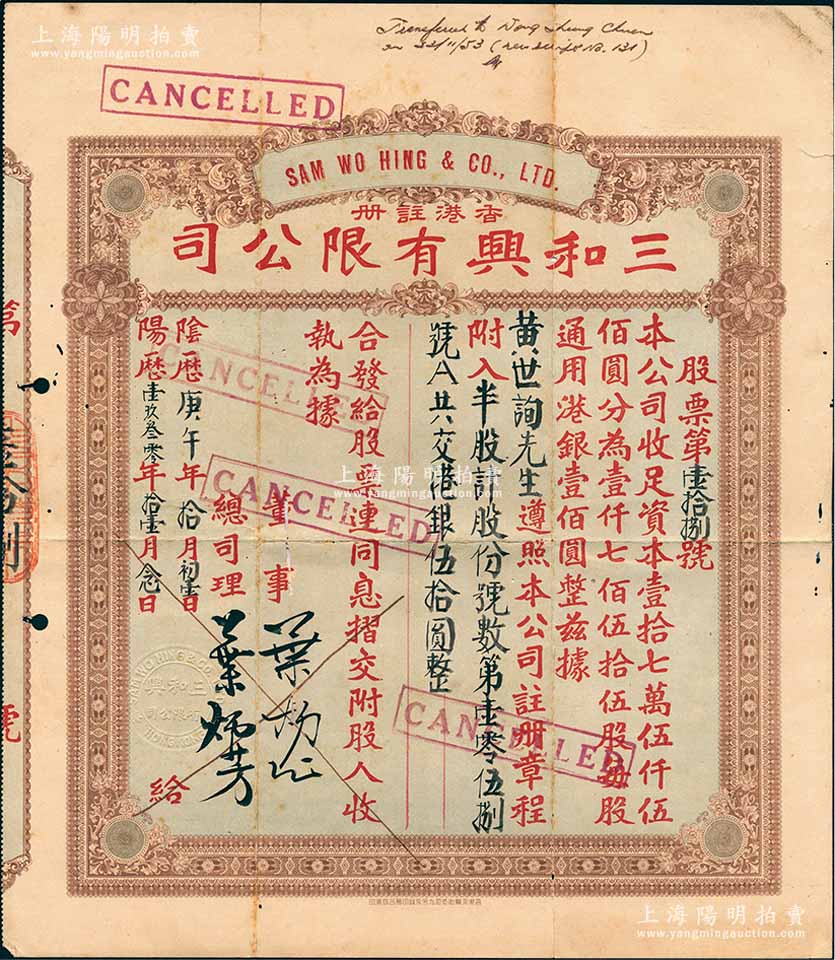 上海陽明拍賣
www.yangmingauction.com
on 22/11/53
CANCELLED
SAM WO HING & CO., LTD.
香港註册
三和興有限公司
股票第壹拾捌號
本公司收足資本壹拾七萬伍仟伍
佰圓分為壹仟七佰伍拾伍股每股
通用港銀壹佰圓整茲據
黃世詢先生遵照本公司註册章程
附入半股 股份號數第壹零伍捌
號A共交港銀伍拾圓整
合發給股票連同息摺交附股人收
執為據
董事
總司理 葉炳芳
陰歷庚午年拾月初壹日
陽歷壹玖叁零年拾壹月念日
給
CANCELLED
CANCELLED
CANCELLED
SAM WO HING & CO.
三和興
有限公司
HONG KONG
第
壹拾捌
號
上海陽明拍賣
www.yangmingauction.com
上海陽明拍賣
www.yangmingauction.com